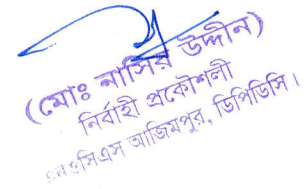 (মোঃ নাসির উদ্দীন)
নির্বাহী প্রকৌশলী
এনওসিএস আজিমপুর, ডিপিডিসি।